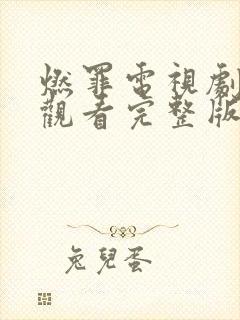 燃罪電視劇
觀看完整版
兔兒蛋